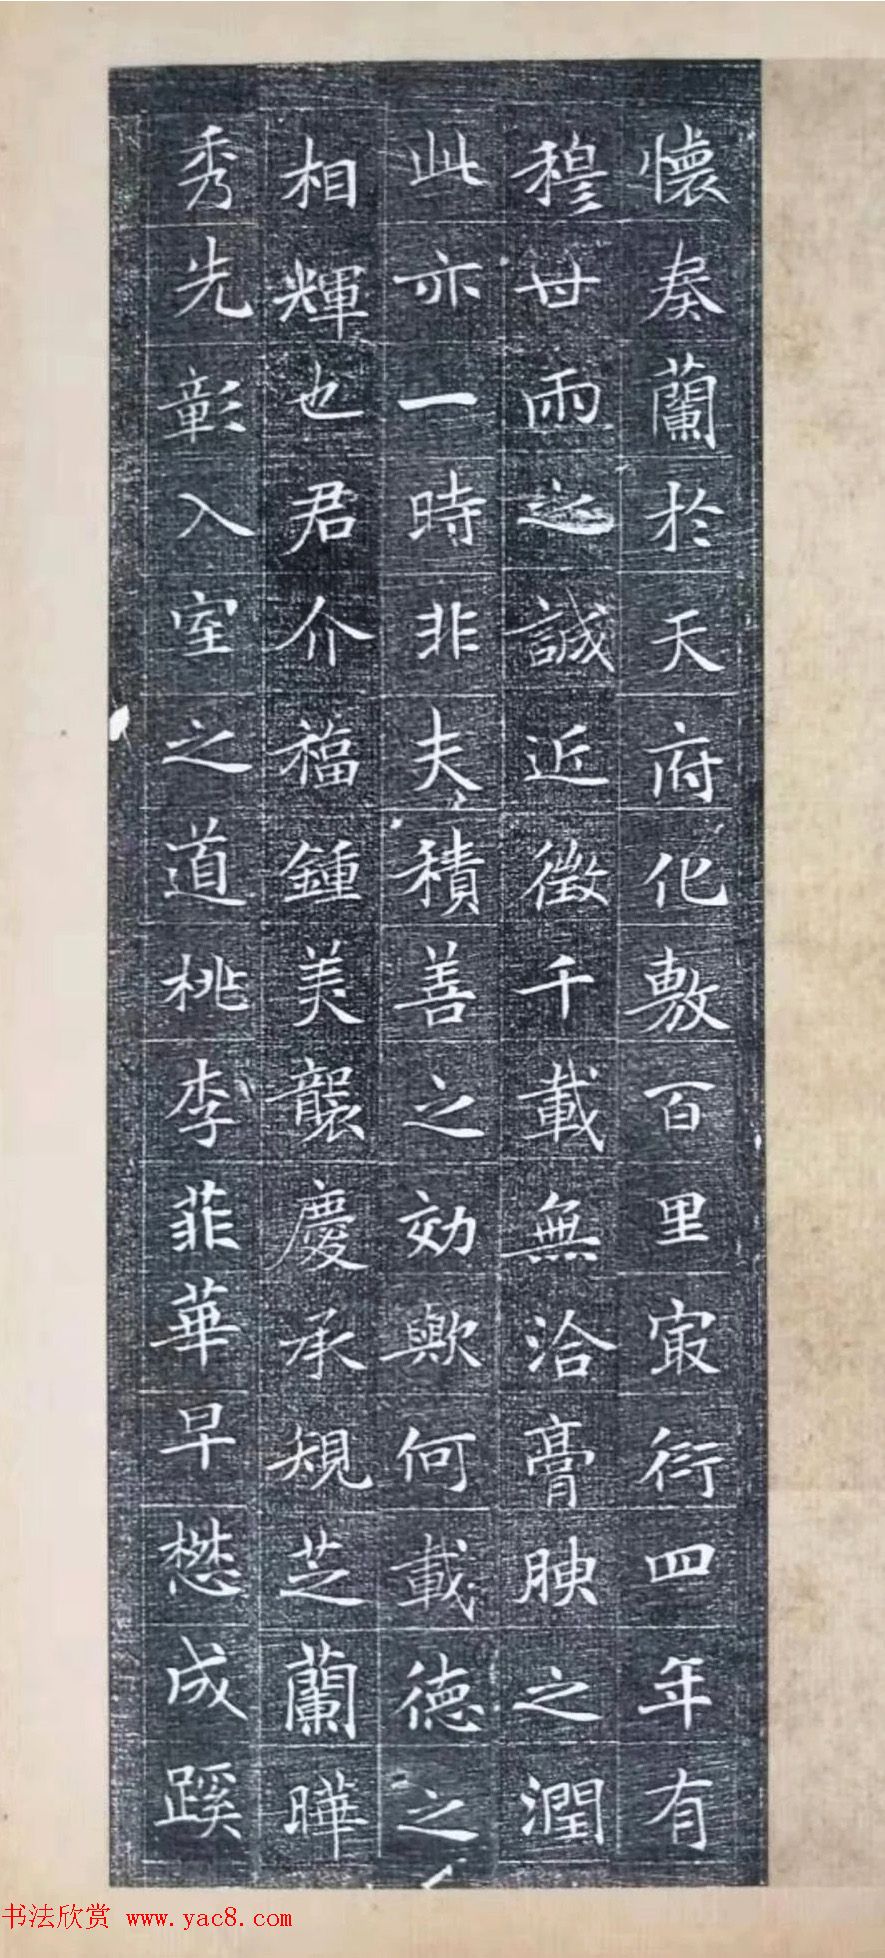 懐奏蘭於天府化敷百里㝡衍四年有
穆世雨之誠近徴千載無洽膏腴之潤
此亦一時非夫積善之効歟何載德之
相輝也君介福鍾美襲慶承規芝蘭曄
秀先彰入室之道桃李菲華早懋成蹊
书法欣赏 www.yac8.com